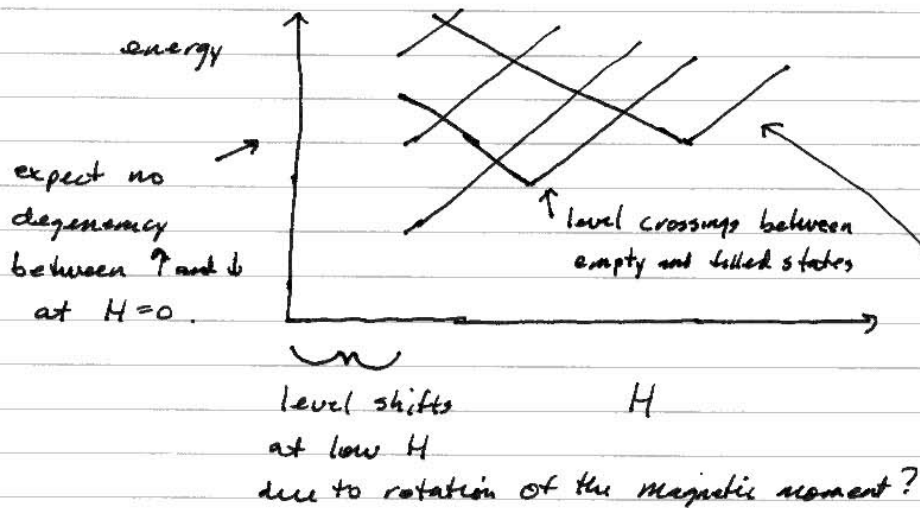 energy
expect no
degeneracy
between ↑ and ↓
at H=0.
level crossings between
empty and filled states
level shifts
at low H
due to rotation of the magnetic moment?
H